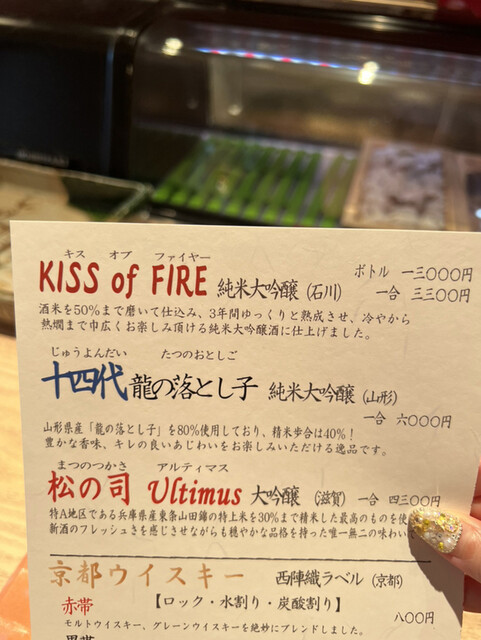 キス オブ ファイヤー
KISS of FIRE 純米大吟醸 (石川) ボトル 一三〇〇〇円
一合 三三〇〇円
酒米を50%まで磨いて仕込み、3年間ゆっくりと熟成させ、冷やから
熱燗まで巾広くお楽しみ頂ける純米大吟醸酒に仕上げました。
じゅうよんだい たつのおとしご
十四代 龍の落とし子 純米大吟醸 (山形)
一合 六〇〇〇円
山形県産「龍の落とし子」を80%使用しており、精米歩合は40%!
豊かな香味、キレの良いあじわいをお楽しみいただける逸品です。
まつのつかさ アルティマス
松の司 Ultimus 大吟醸 (滋賀) 一合 四三〇〇円
特A地区である兵庫県産東条山田錦の特上米を30%まで精米した最高のものを使
新酒のフレッシュさを感じさせながらも穏やかな品格を持った唯一無二の味わい
京都ウイスキー 西陣織ラベル (京都)
赤帯 【ロック・水割り・炭酸割り】 八〇〇円
モルトウイスキー、グレーンウイスキーを絶妙にブレンドしました。
黒帯